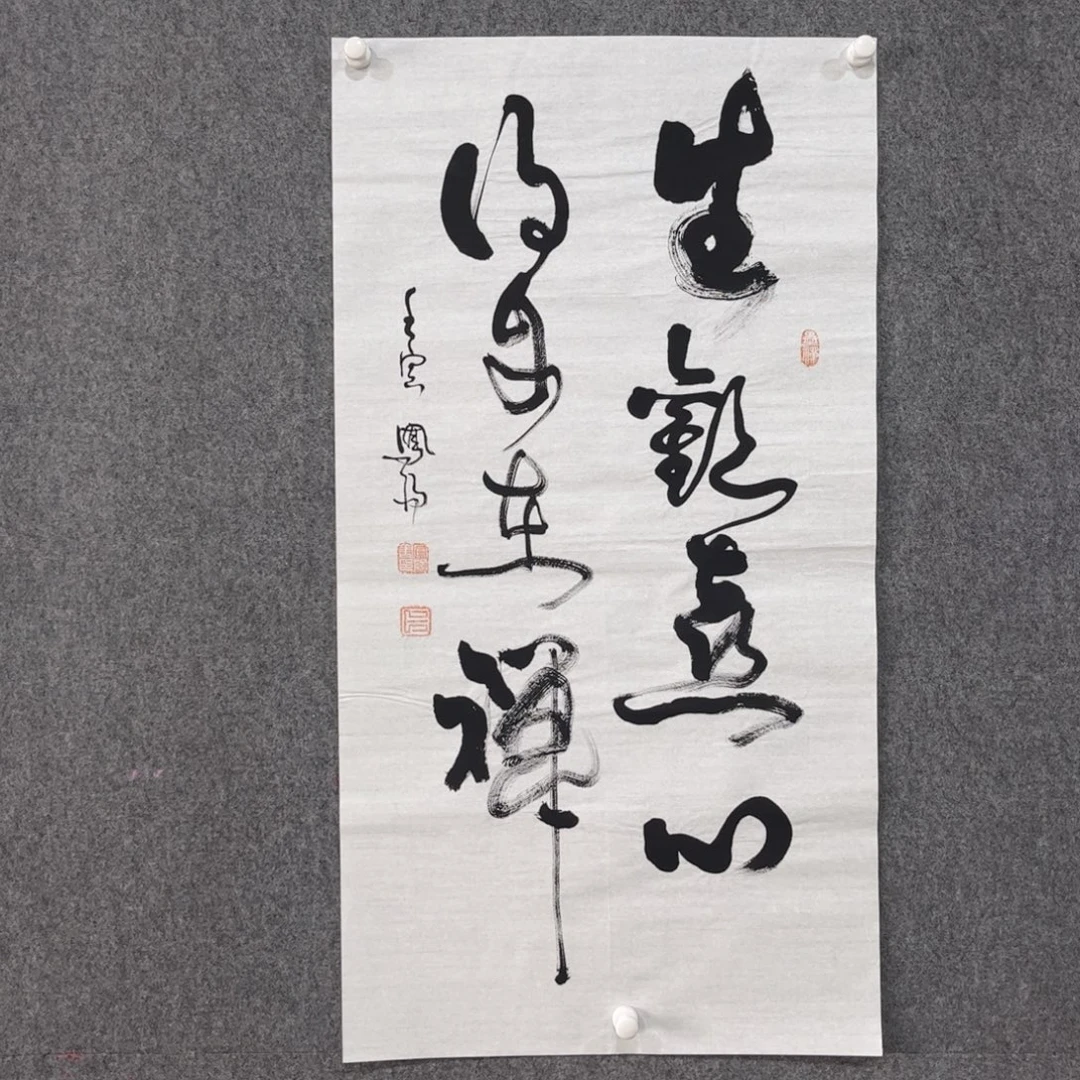 生歡喜心
得自在禪
壬寅